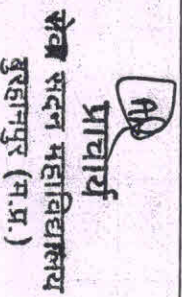 प्राचार्य
सेवा सदन महाविद्यालय
बुरहानपुर (म.प्र.)